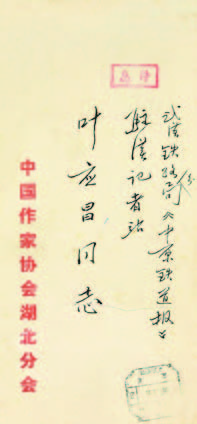 武汉铁路分局《中原铁道报》
驻汉记者站
叶应昌同志
中国作家协会湖北分会